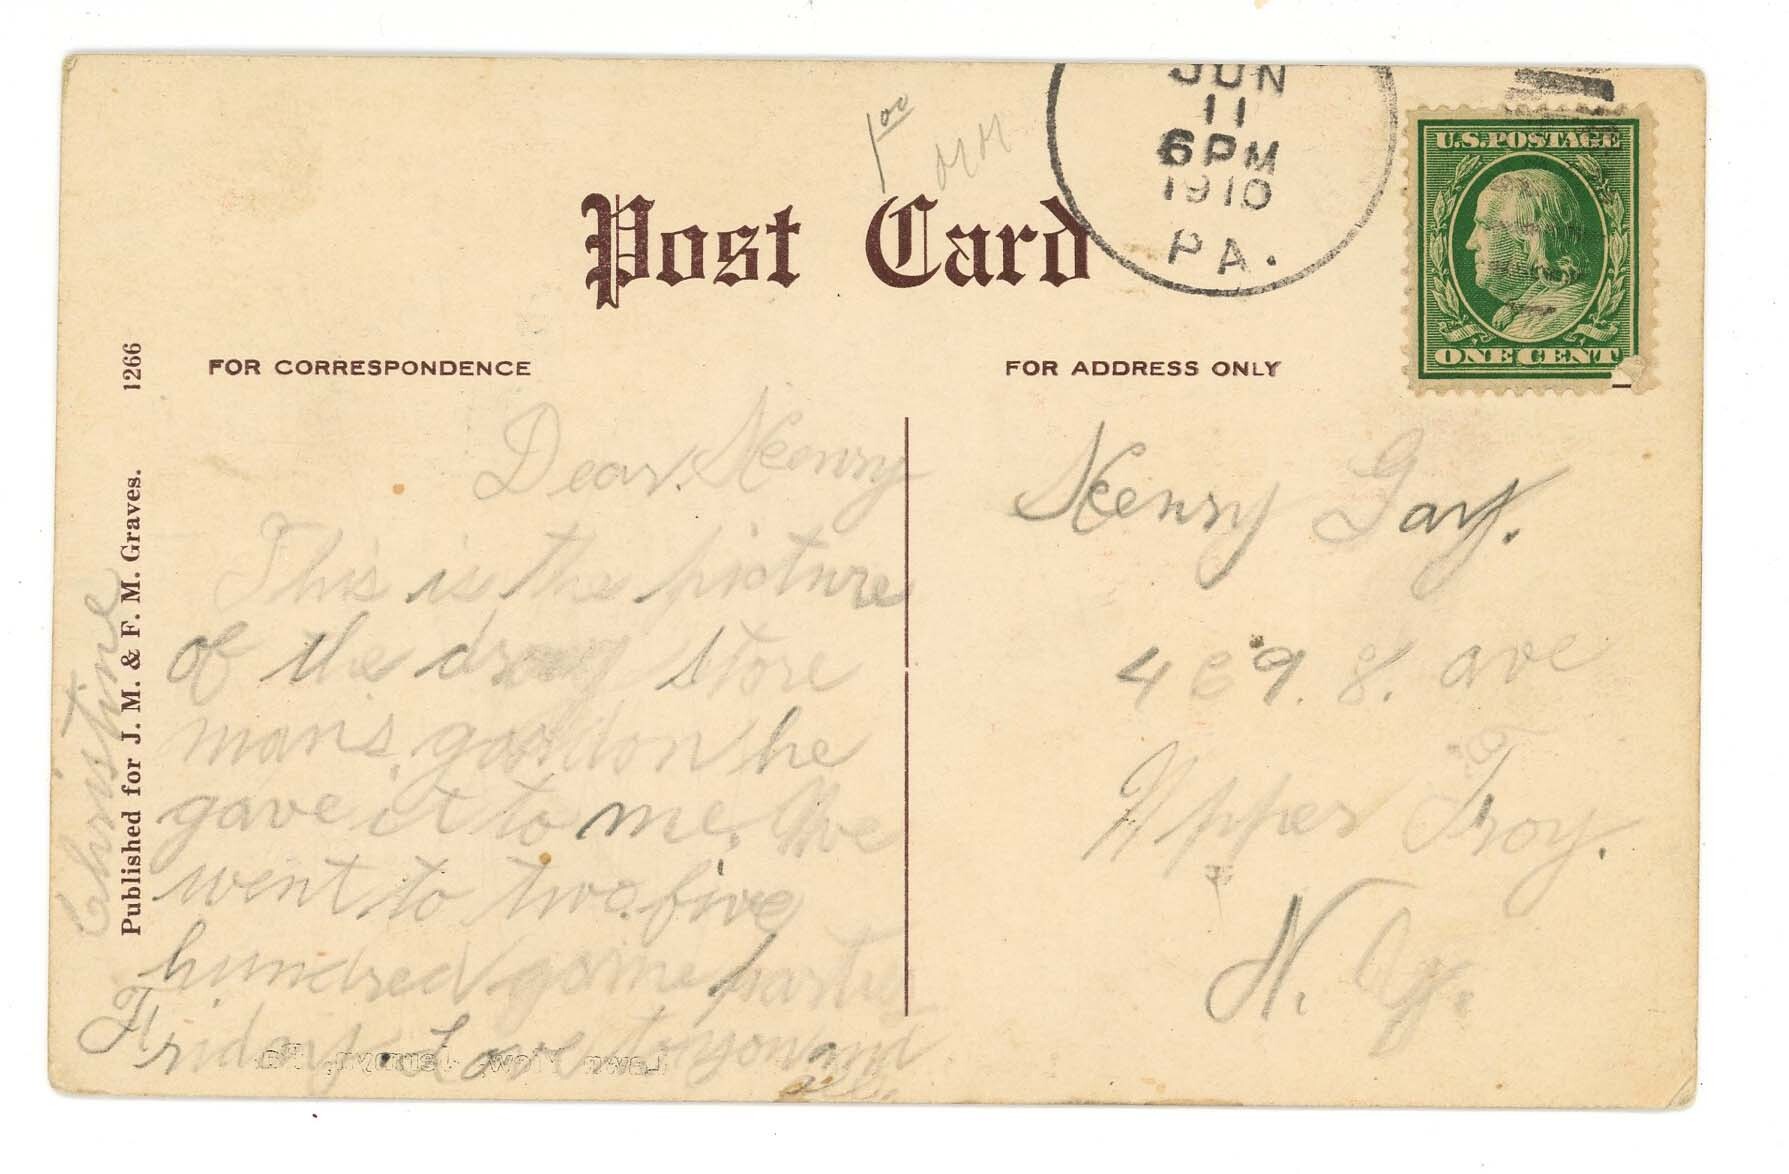 1.00
JUN
11
6 PM
1910
PA.
U.S. POSTAGE
ONE CENT
Post Card
FOR CORRESPONDENCE
FOR ADDRESS ONLY
1266
Published for J. M. & F. M. Graves.
Dear Henry
This is the picture
of the drug store
man's gardon he
gave it to me. We
went to two five
hundred game parties
Friday. Love to you and
all.
Christine
Henry Gay.
469. 8. ave
Upper Troy.
N. Y.